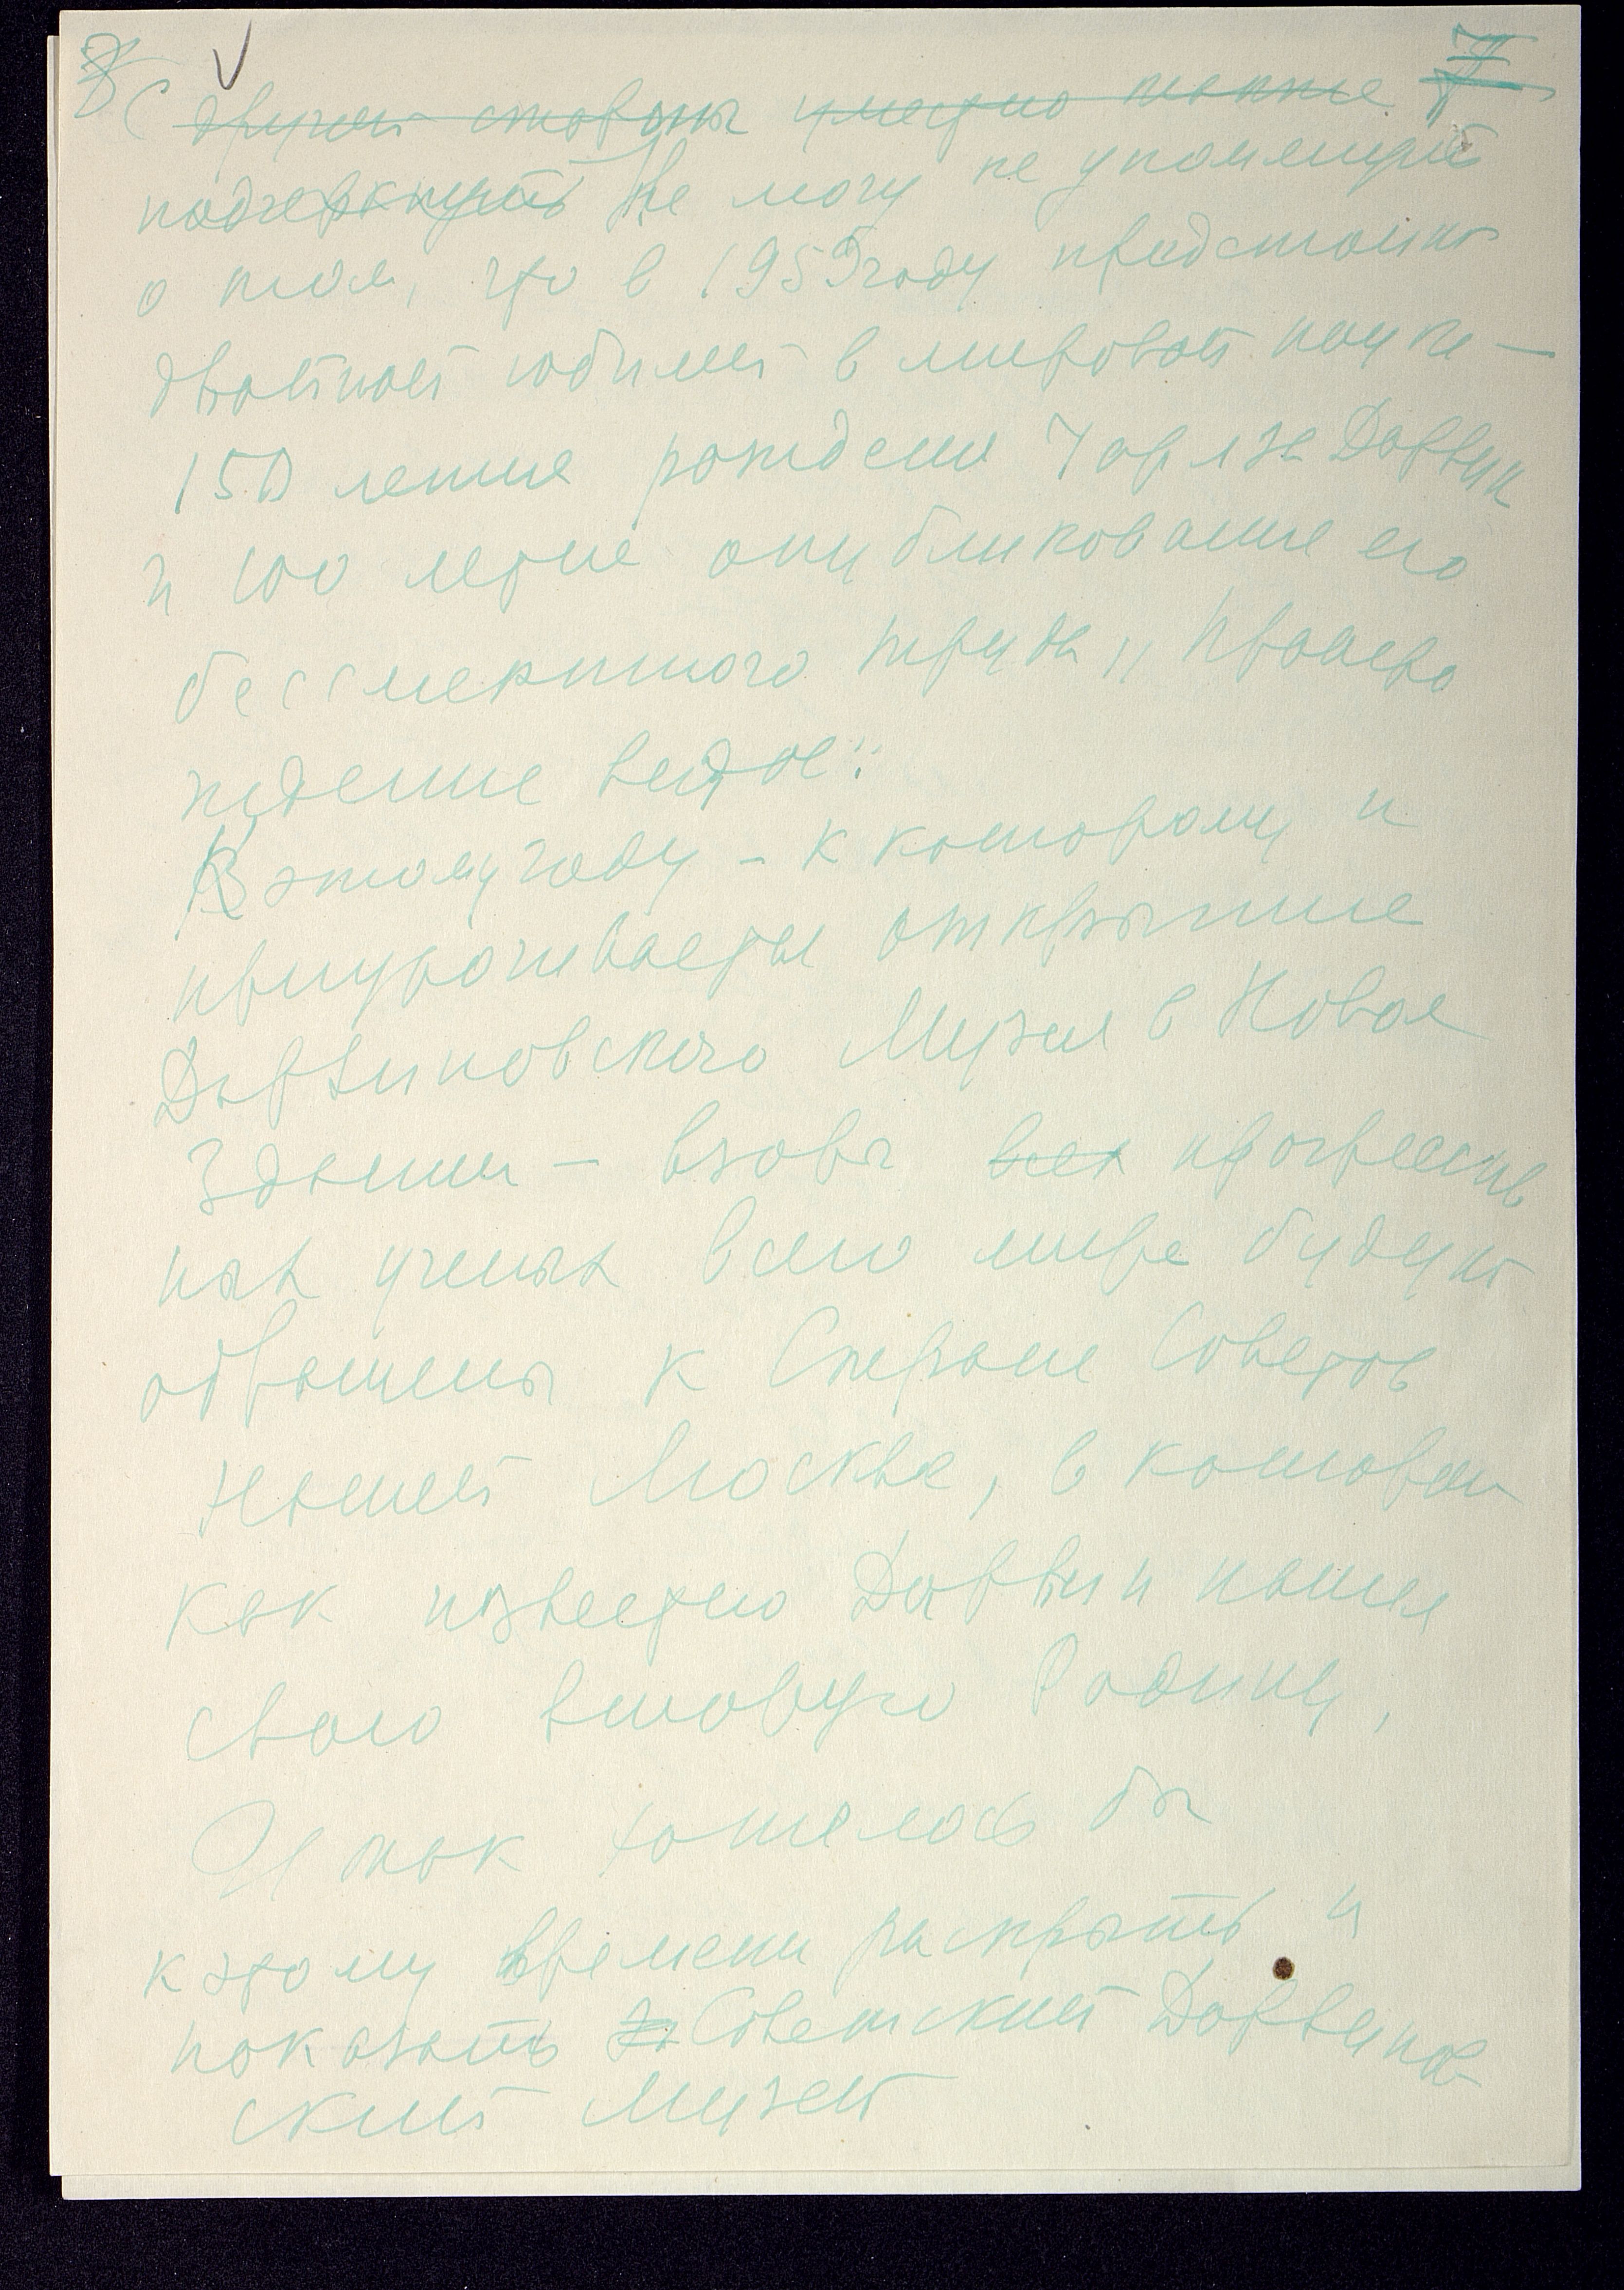 8 V 7
С другой стороны уместно также
подчеркнуть Не могу не упомянуть
о том, что в 1959 году предстоит
двойной юбилей в мировой науке —
150 летие рождения Чарлза Дарвин
и 100 летие опубликование его
бессмертного труда „Происхо
ждение видов".
К этому году – к которому и
приурочивается открытие
Дарвиновского Музея в Новом
Здании – взоры всех прогрессив
ных ученых всего мира будут
обращены к Стране Советов
нашей Москве, в которой
как известно Дарвин нашел
свою вторую Родину,
И так хотелось бы
к этому времени раскрыть и
показать Советский Дарвинов
ский музей